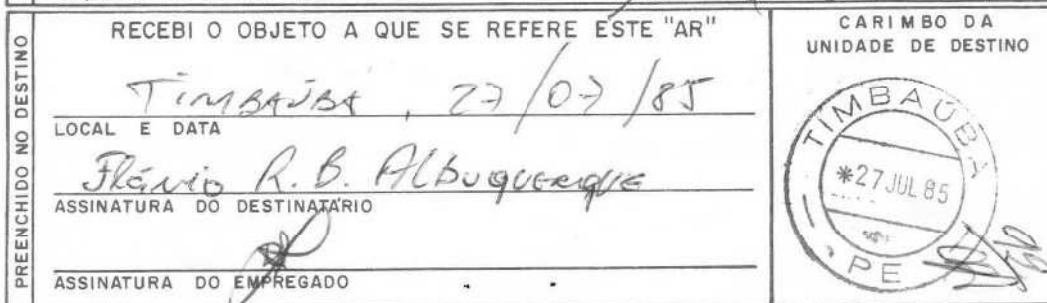 PREENCHIDO NO DESTINO
RECEBI O OBJETO A QUE SE REFERE ESTE "AR"
TIMBAÚBA, 27/07/85
LOCAL E DATA
Flávio R. B. Albuquerque
ASSINATURA DO DESTINATÁRIO
ASSINATURA DO EMPREGADO
CARIMBO DA
UNIDADE DE DESTINO
TIMBAÚBA
*27 JUL 85
PE